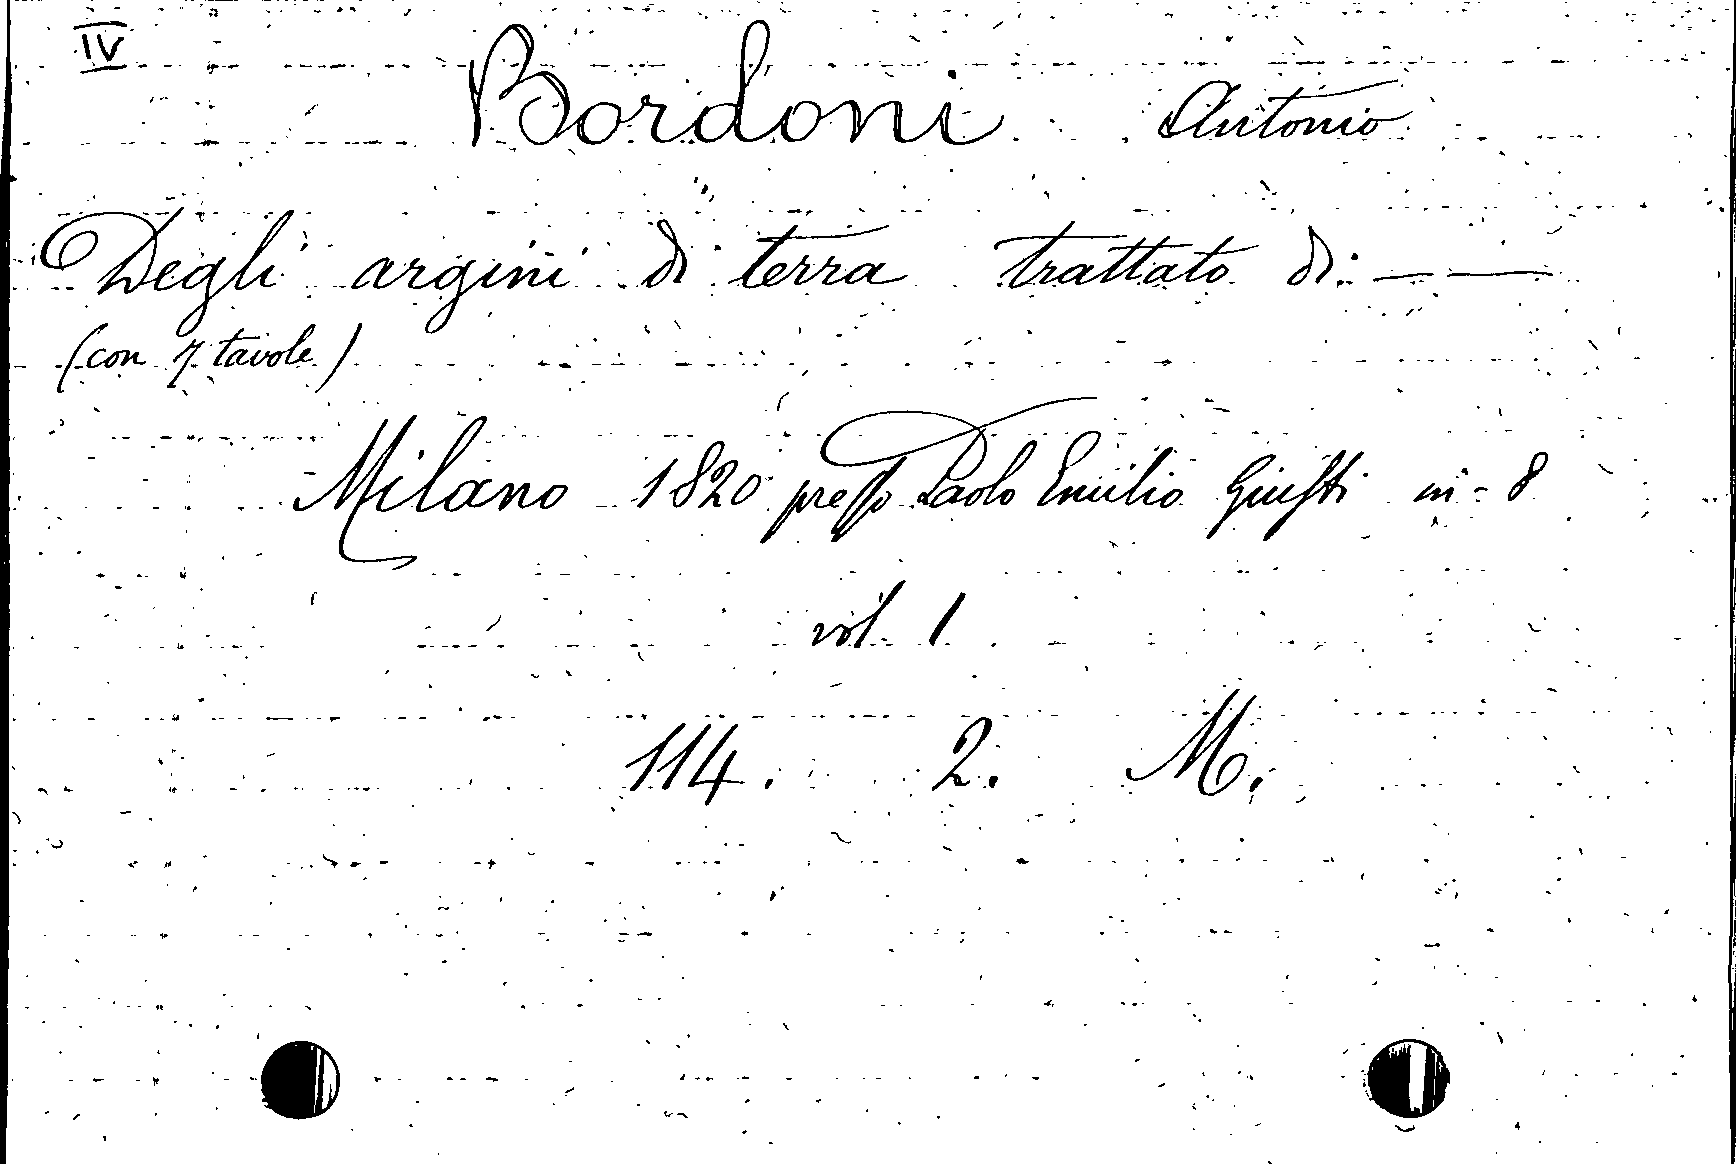 IV
Bordoni Antonio
Degli argini di terra trattato di: — —
(con 7 tavole)
Milano 1820 presso Paolo Emilio Giusti in-8
vol. 1
114. 2. M.